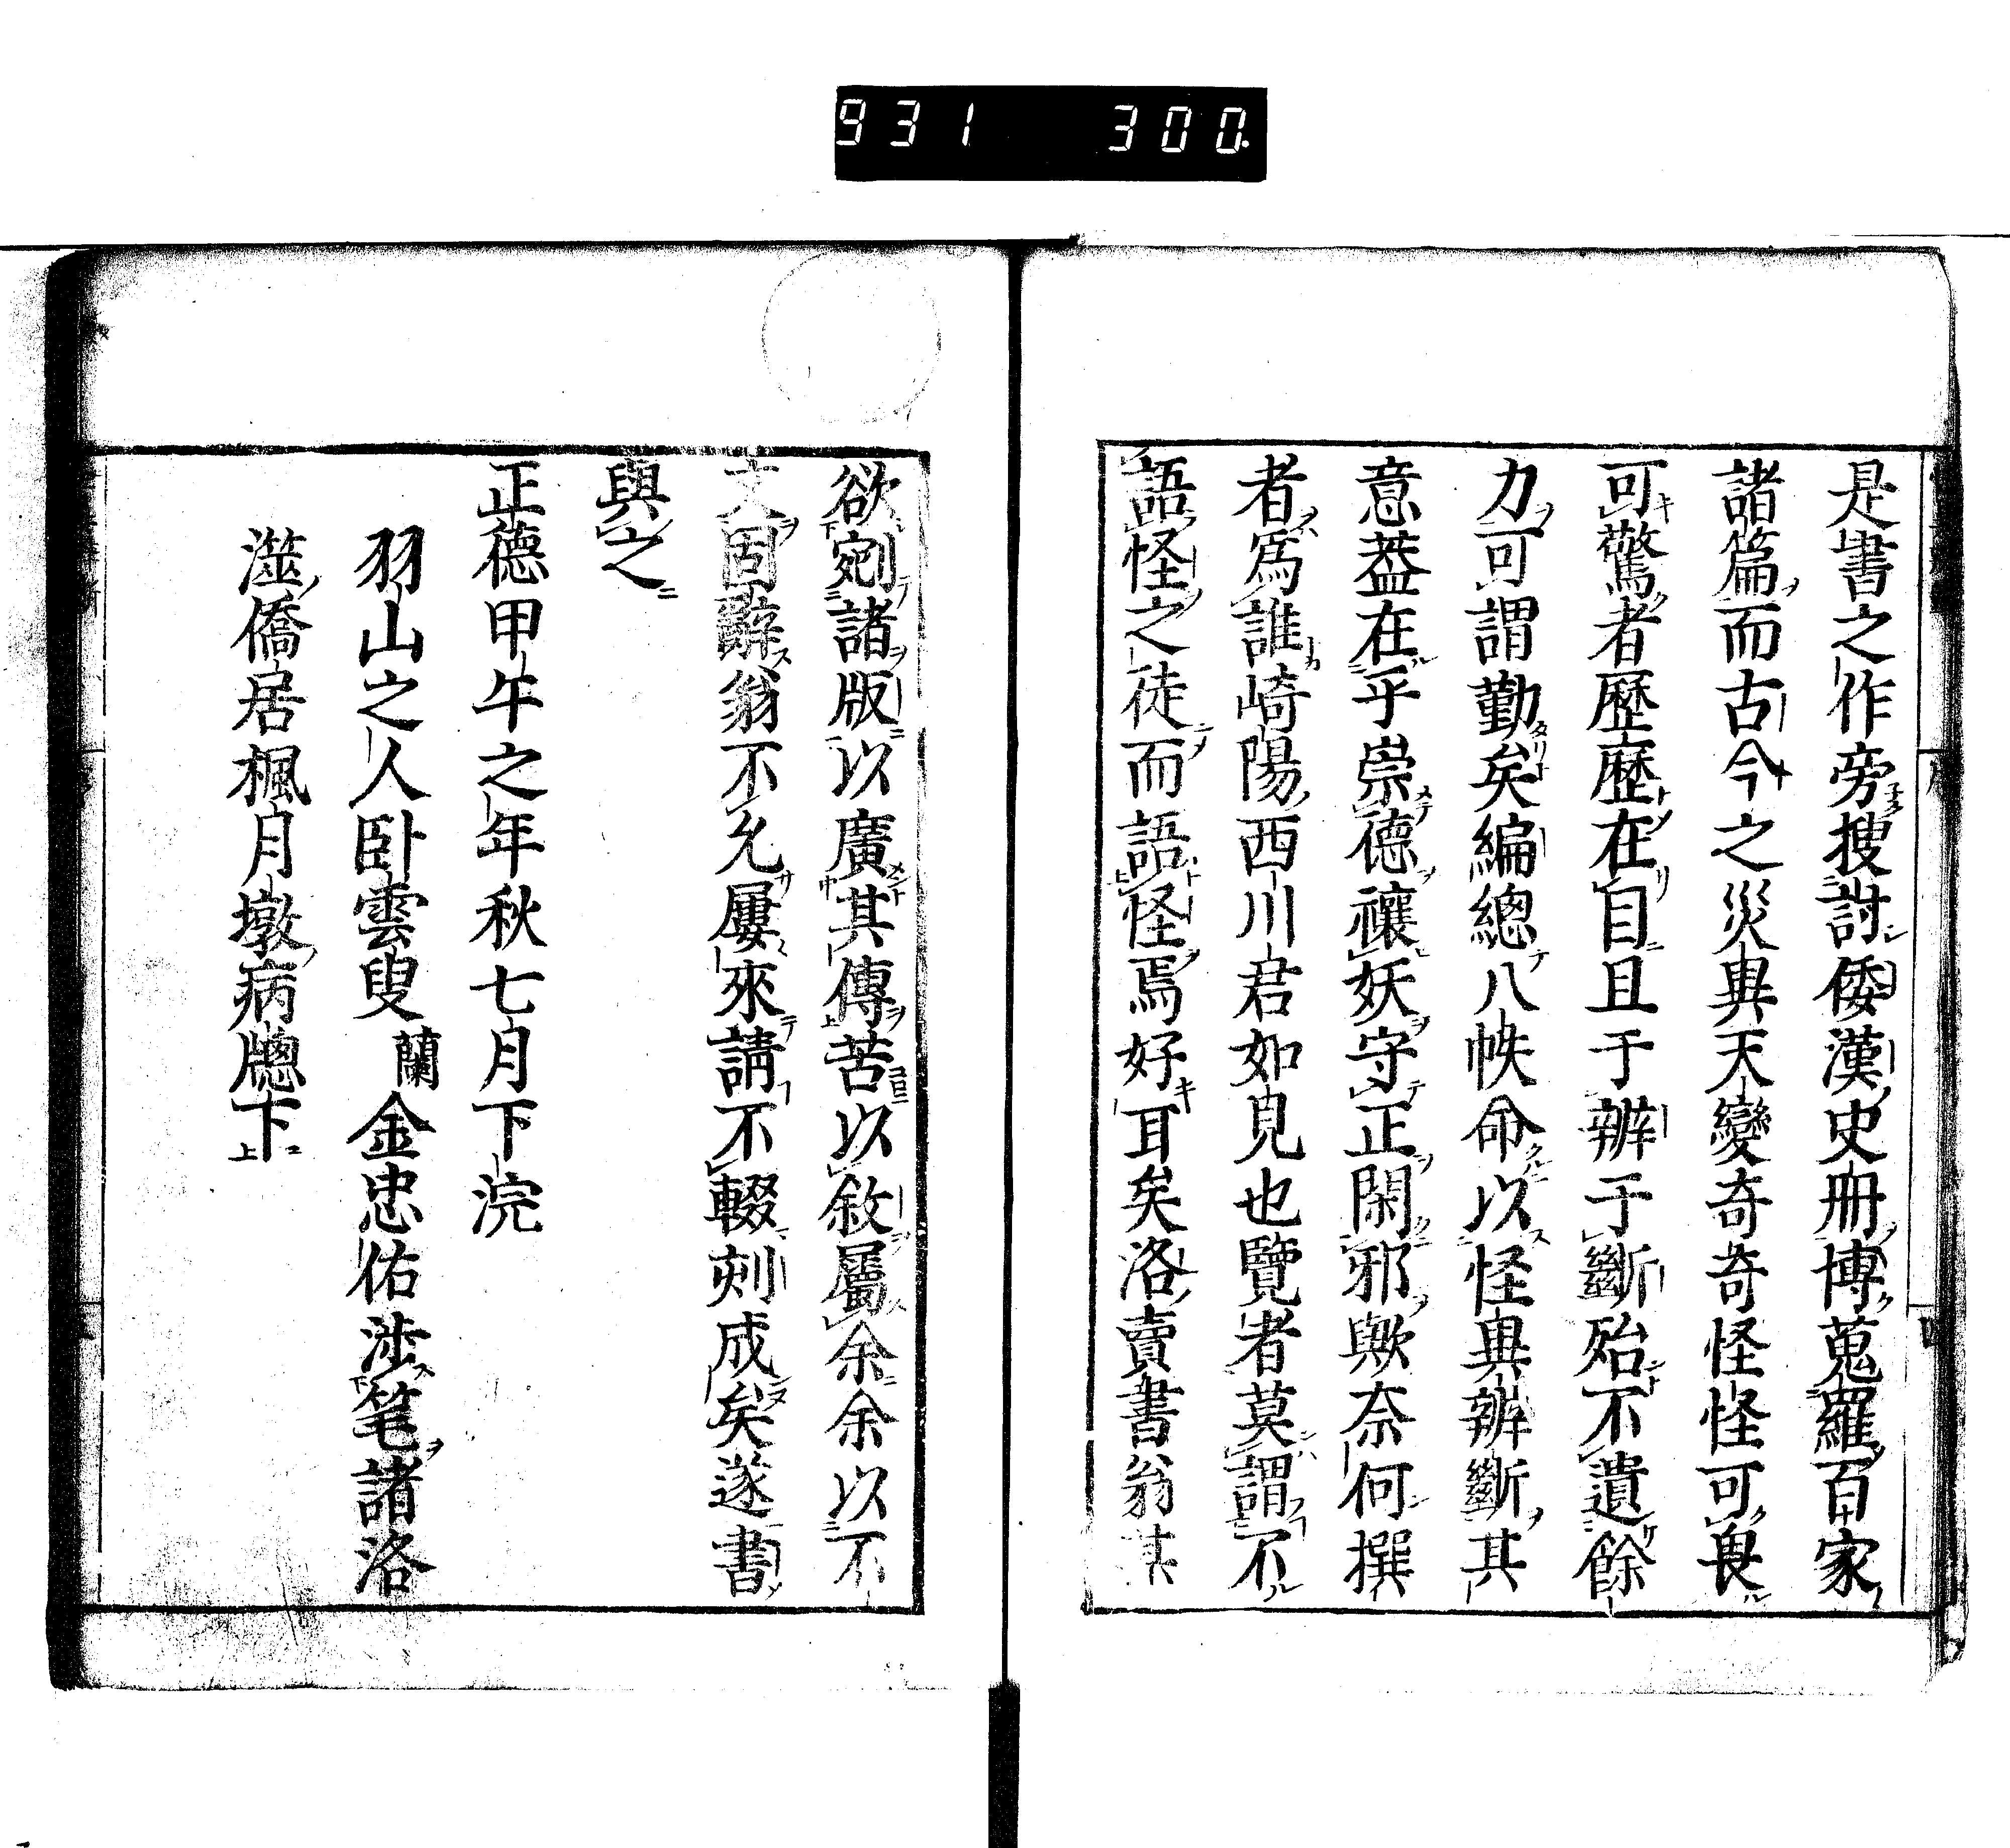 931 300
是書之作旁搜討倭漢史冊博蒐羅百家
諸篇而古今之災與天變奇奇怪怪可畏
可驚者歷歷在目且于辨于斷殆不遺餘
力可謂勤矣編總八帙命以怪與辨斷其
意葢在乎崇德禳妖守正閑邪歟奈何撰
者爲誰崎陽西川君如見也覽者莫謂不
語怪之徒而語怪焉好耳矣洛賣書翁其
欲剜諸版以廣其傳苦以敘屬余余以不
文固辭翁不允屢來請不輟刻成矣遂書
與之
正德甲午之年秋七月下浣
羽山之人臥雲叟蘭金忠佑涉筆諸洛
澨僑居楓月墩病牕下